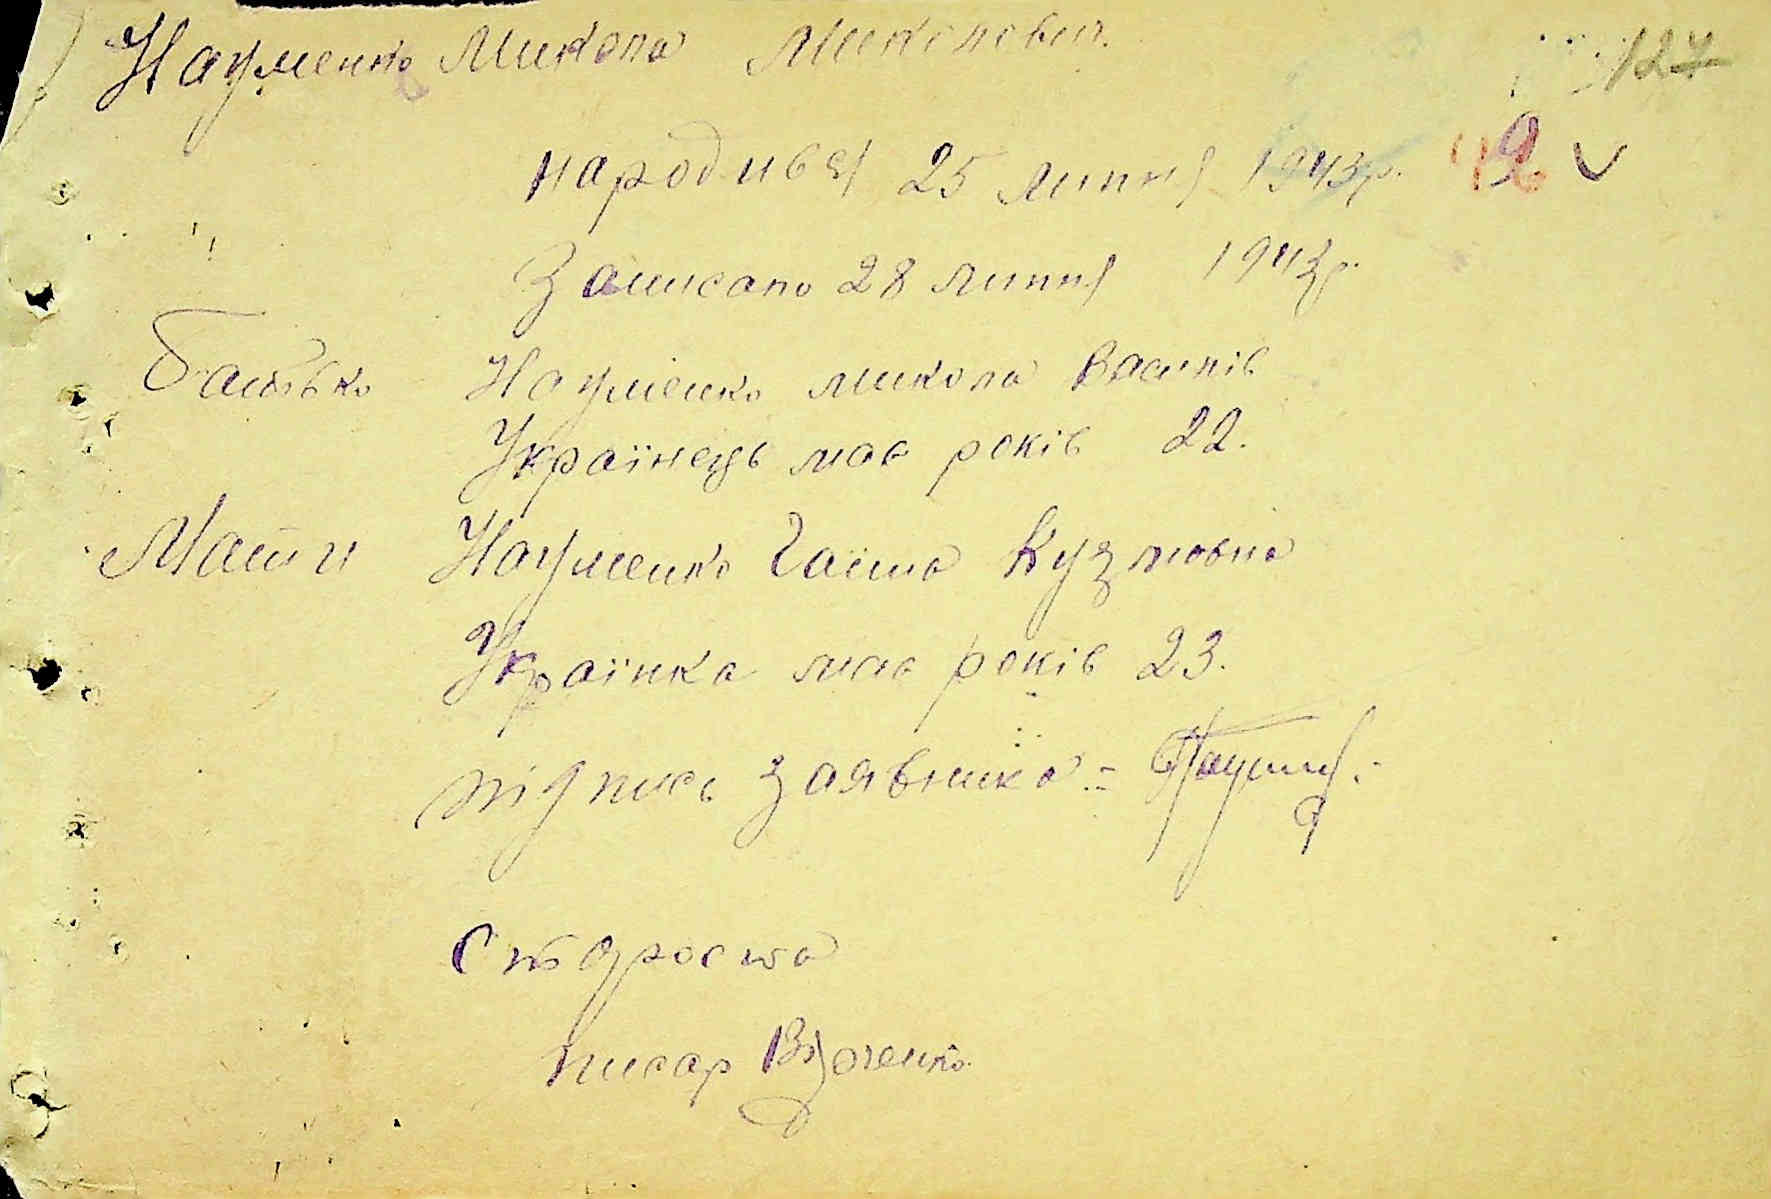 Науменко Микола Миколович.
127
народився 25 липня 1943р.
Записано 28 липня 1943р.
Батько Науменко микола Василів
Українець має років 22.
Мати Науменко Кузмовна
Українка має років 23.
підпись заявника :-
Староста
писар